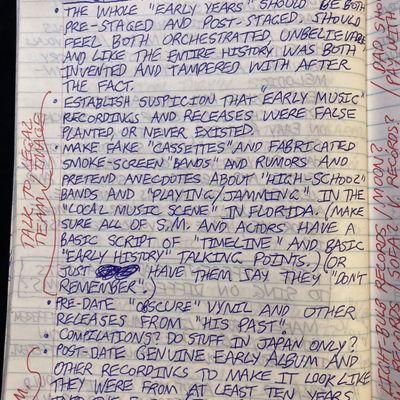 • THE WHOLE "EARLY YEARS" SHOULD BE BOTH
PRE-STAGED AND POST-STAGED. SHOULD
FEEL BOTH ORCHESTRATED, UNBELIEVABLE,
AND LIKE THE ENTIRE HISTORY WAS BOTH
INVENTED AND TAMPERED WITH AFTER
THE FACT.
• ESTABLISH SUSPICION THAT "EARLY MUSIC"
RECORDINGS AND RELEASES WERE FALSE
PLANTED, OR NEVER EXISTED.
• MAKE FAKE "CASSETTES" AND FABRICATED
SMOKE-SCREEN "BANDS" AND RUMORS AND
PRETEND ANECDOTES ABOUT "HIGH-SCHOOL"
BANDS AND "PLAYING/JAMMING" IN THE
"LOCAL MUSIC SCENE" IN FLORIDA. (MAKE
SURE ALL OF S.M. AND ACTORS HAVE A
BASIC SCRIPT OF "TIMELINE" AND BASIC
"EARLY HISTORY" TALKING POINTS,) (OR
JUST HAVE THEM SAY THEY "DON'T
REMEMBER".)
• PRE-DATE "OBSCURE" VYNIL AND OTHER
RELEASES FROM "HIS PAST".
• COMPILATIONS? DO STUFF IN JAPAN ONLY?
• POST-DATE GENUINE EARLY ALBUM AND
OTHER RECORDINGS TO MAKE IT LOOK LIKE
THEY WERE FROM AT LEAST TEN YEARS
TALK TO LEGAL
TEAM
LIGHT-BULB RECORDS
RECORDS?